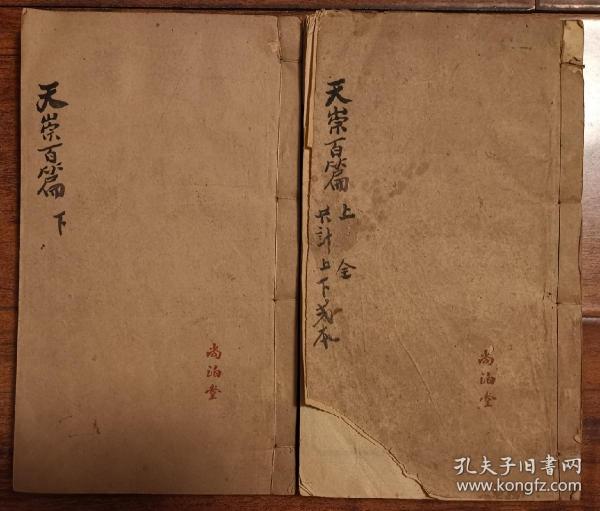 天崇百篇 上 全
共計上下弍本
尚泊堂
天崇百篇 下
尚泊堂
孔夫子旧書网
www.kongfz.com